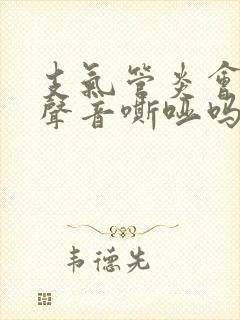 支氣管炎會
聲音嘶啞嗎
韦德先